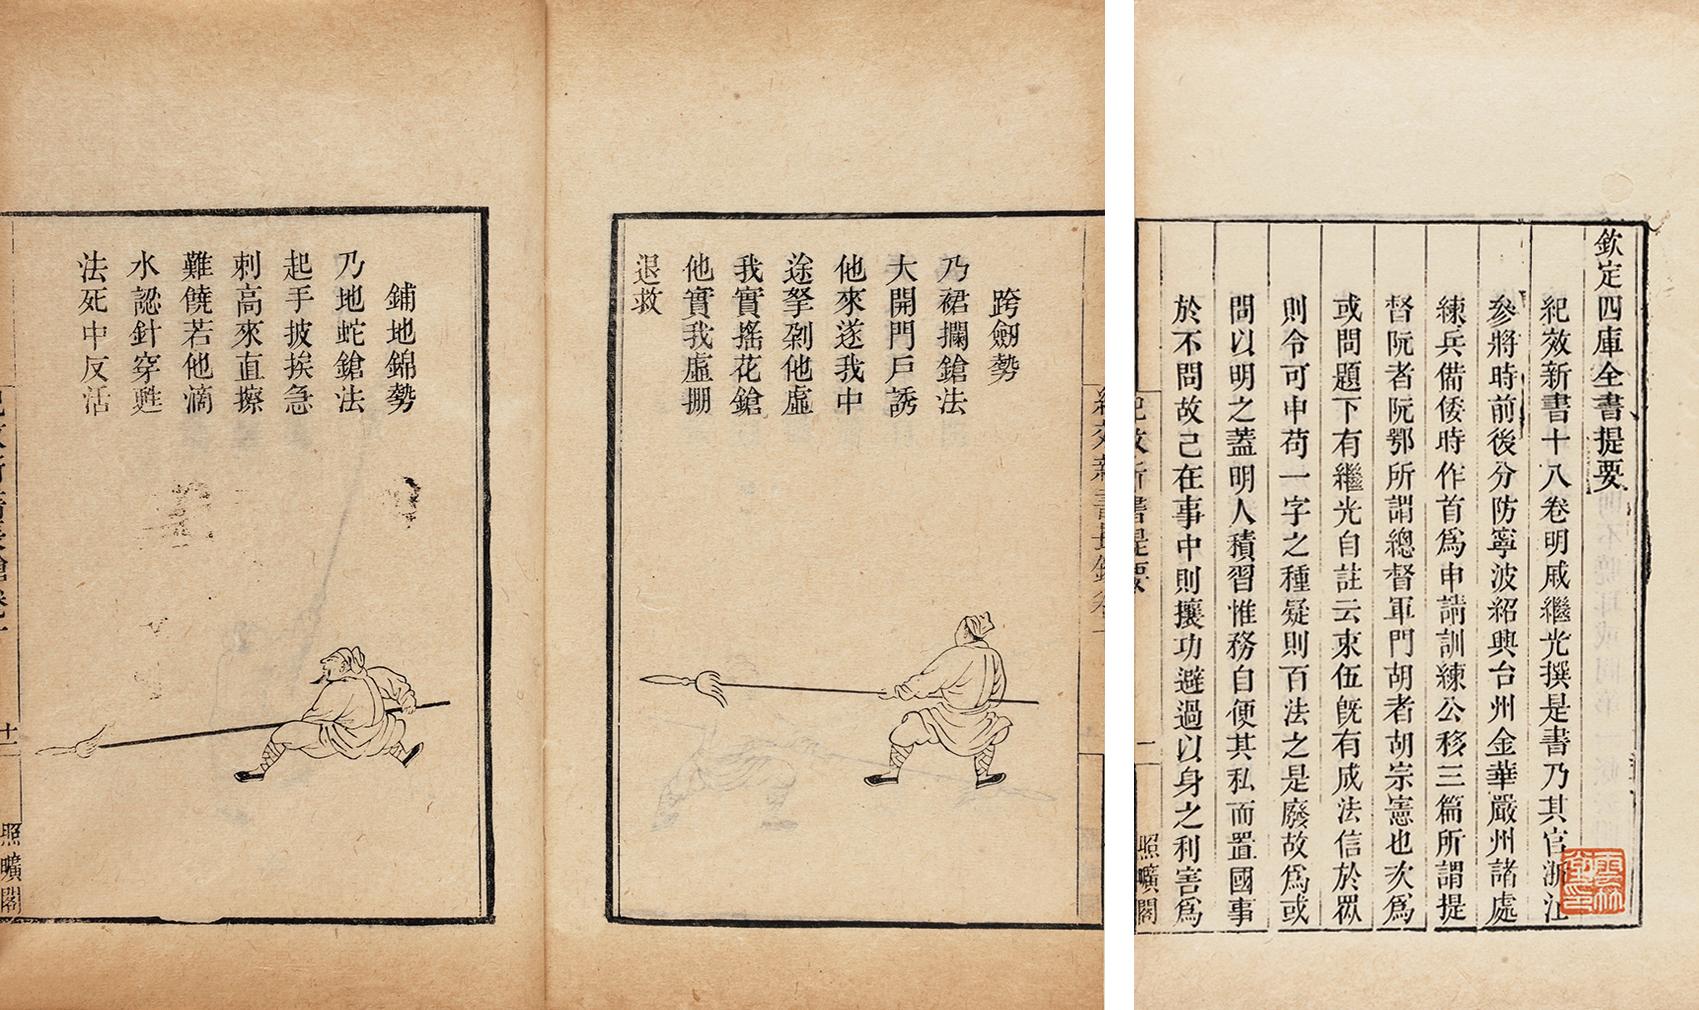 欽定四庫全書提要
紀效新書十八卷明戚繼光撰是書乃其官浙江
參將時前後分防寧波紹興台州金華嚴州諸處
練兵備倭時作首為申請訓練公移三篇所謂提
督阮者阮鄂所謂總督軍門胡者胡宗憲也次為
或問題下有繼光自註云束伍既有成法信於眾
則令可申苟一字之種疑則百法之是廢故為或
問以明之蓋明人積習惟務自便其私而置國事
於不問故己在事中則攘功避過以身之利害為
照曠閣
跨劍勢
乃裙攔鎗法
大開門戶誘
他來遂我中
途拏剁他虛
我實搖花鎗
他實我虛掤
退救
鋪地錦勢
乃地蛇鎗法
起手披挨急
刺高來直擦
難饒若他滴
水認針穿甦
法死中反活
十一
照曠閣